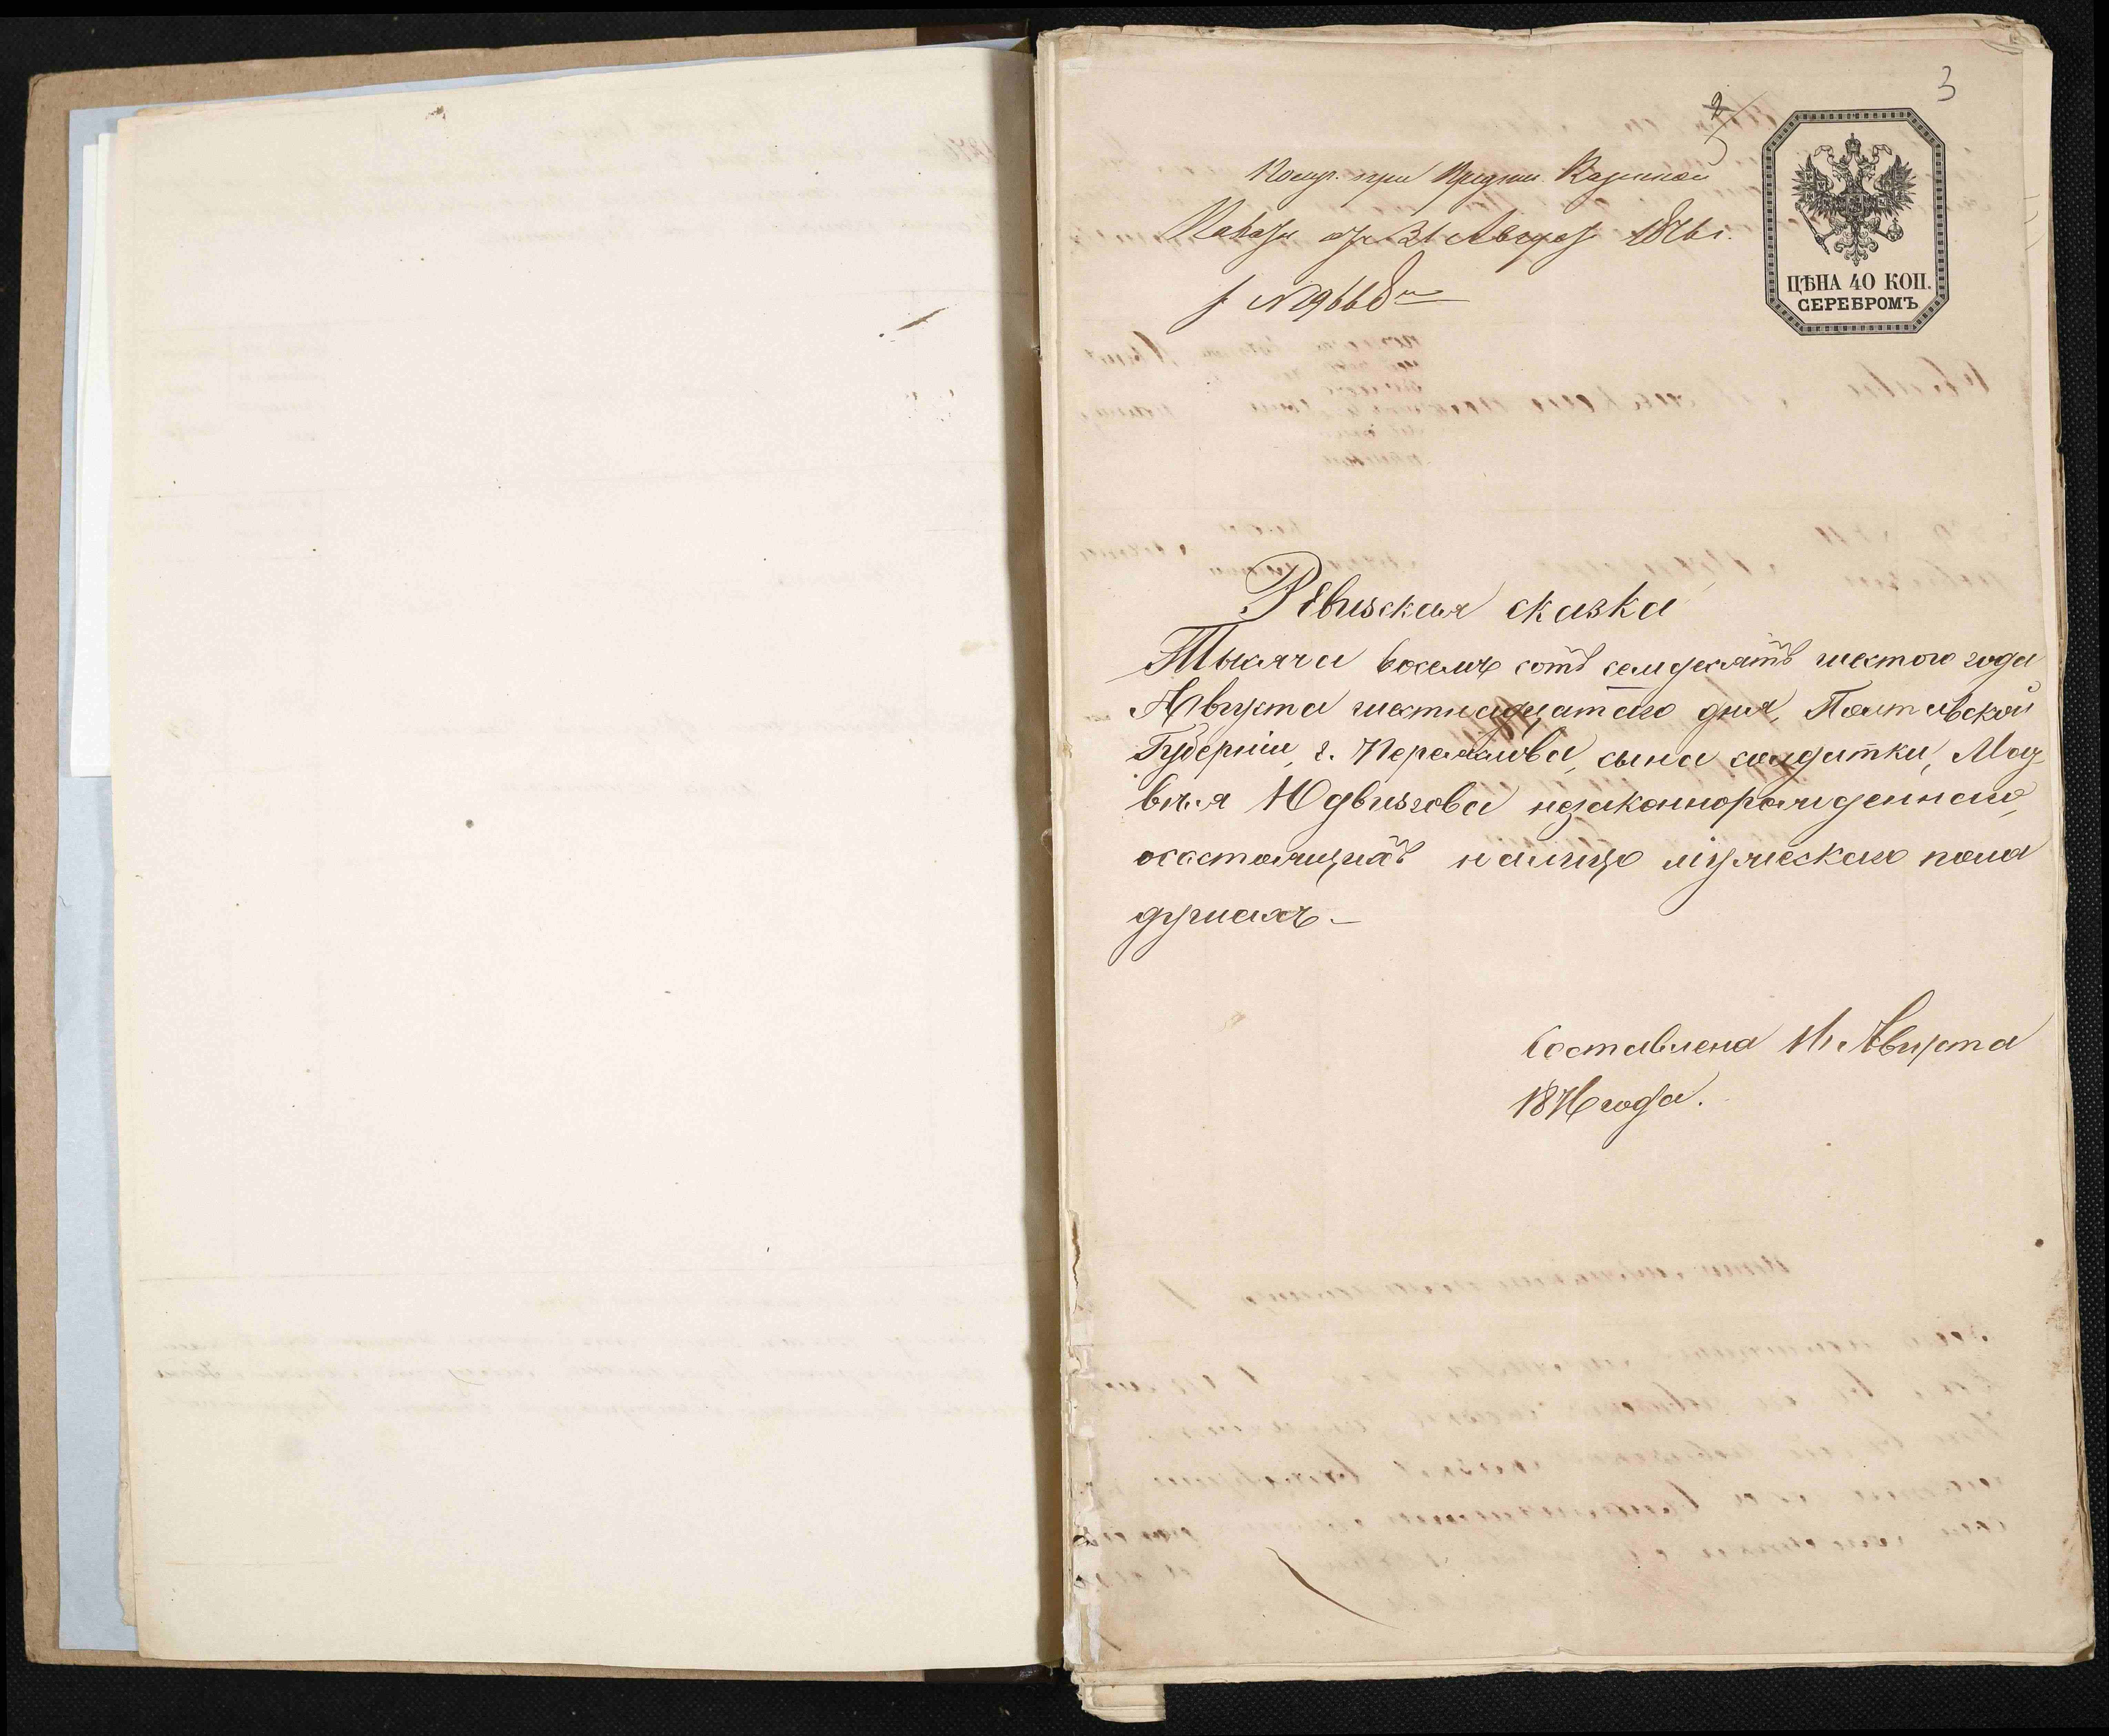 3
Получ. при Предпис. Казенной
Палаты отъ 31 Августа 1876 г.
за №9668
ЦѢНА 40 КОП.
СЕРЕБРОМЪ
Ревизская сказка
Тысяча восемь сотъ семдесятъ шестого года
Августа шестнадцатаго дня, Полтавской
Губерніи, г. Переяслава, сына солдатки,
незаконнорожденнаго,
о состоящихъ на лицо мужескаго пола
душахъ.—
Составлена 16 Августа
1876 года.